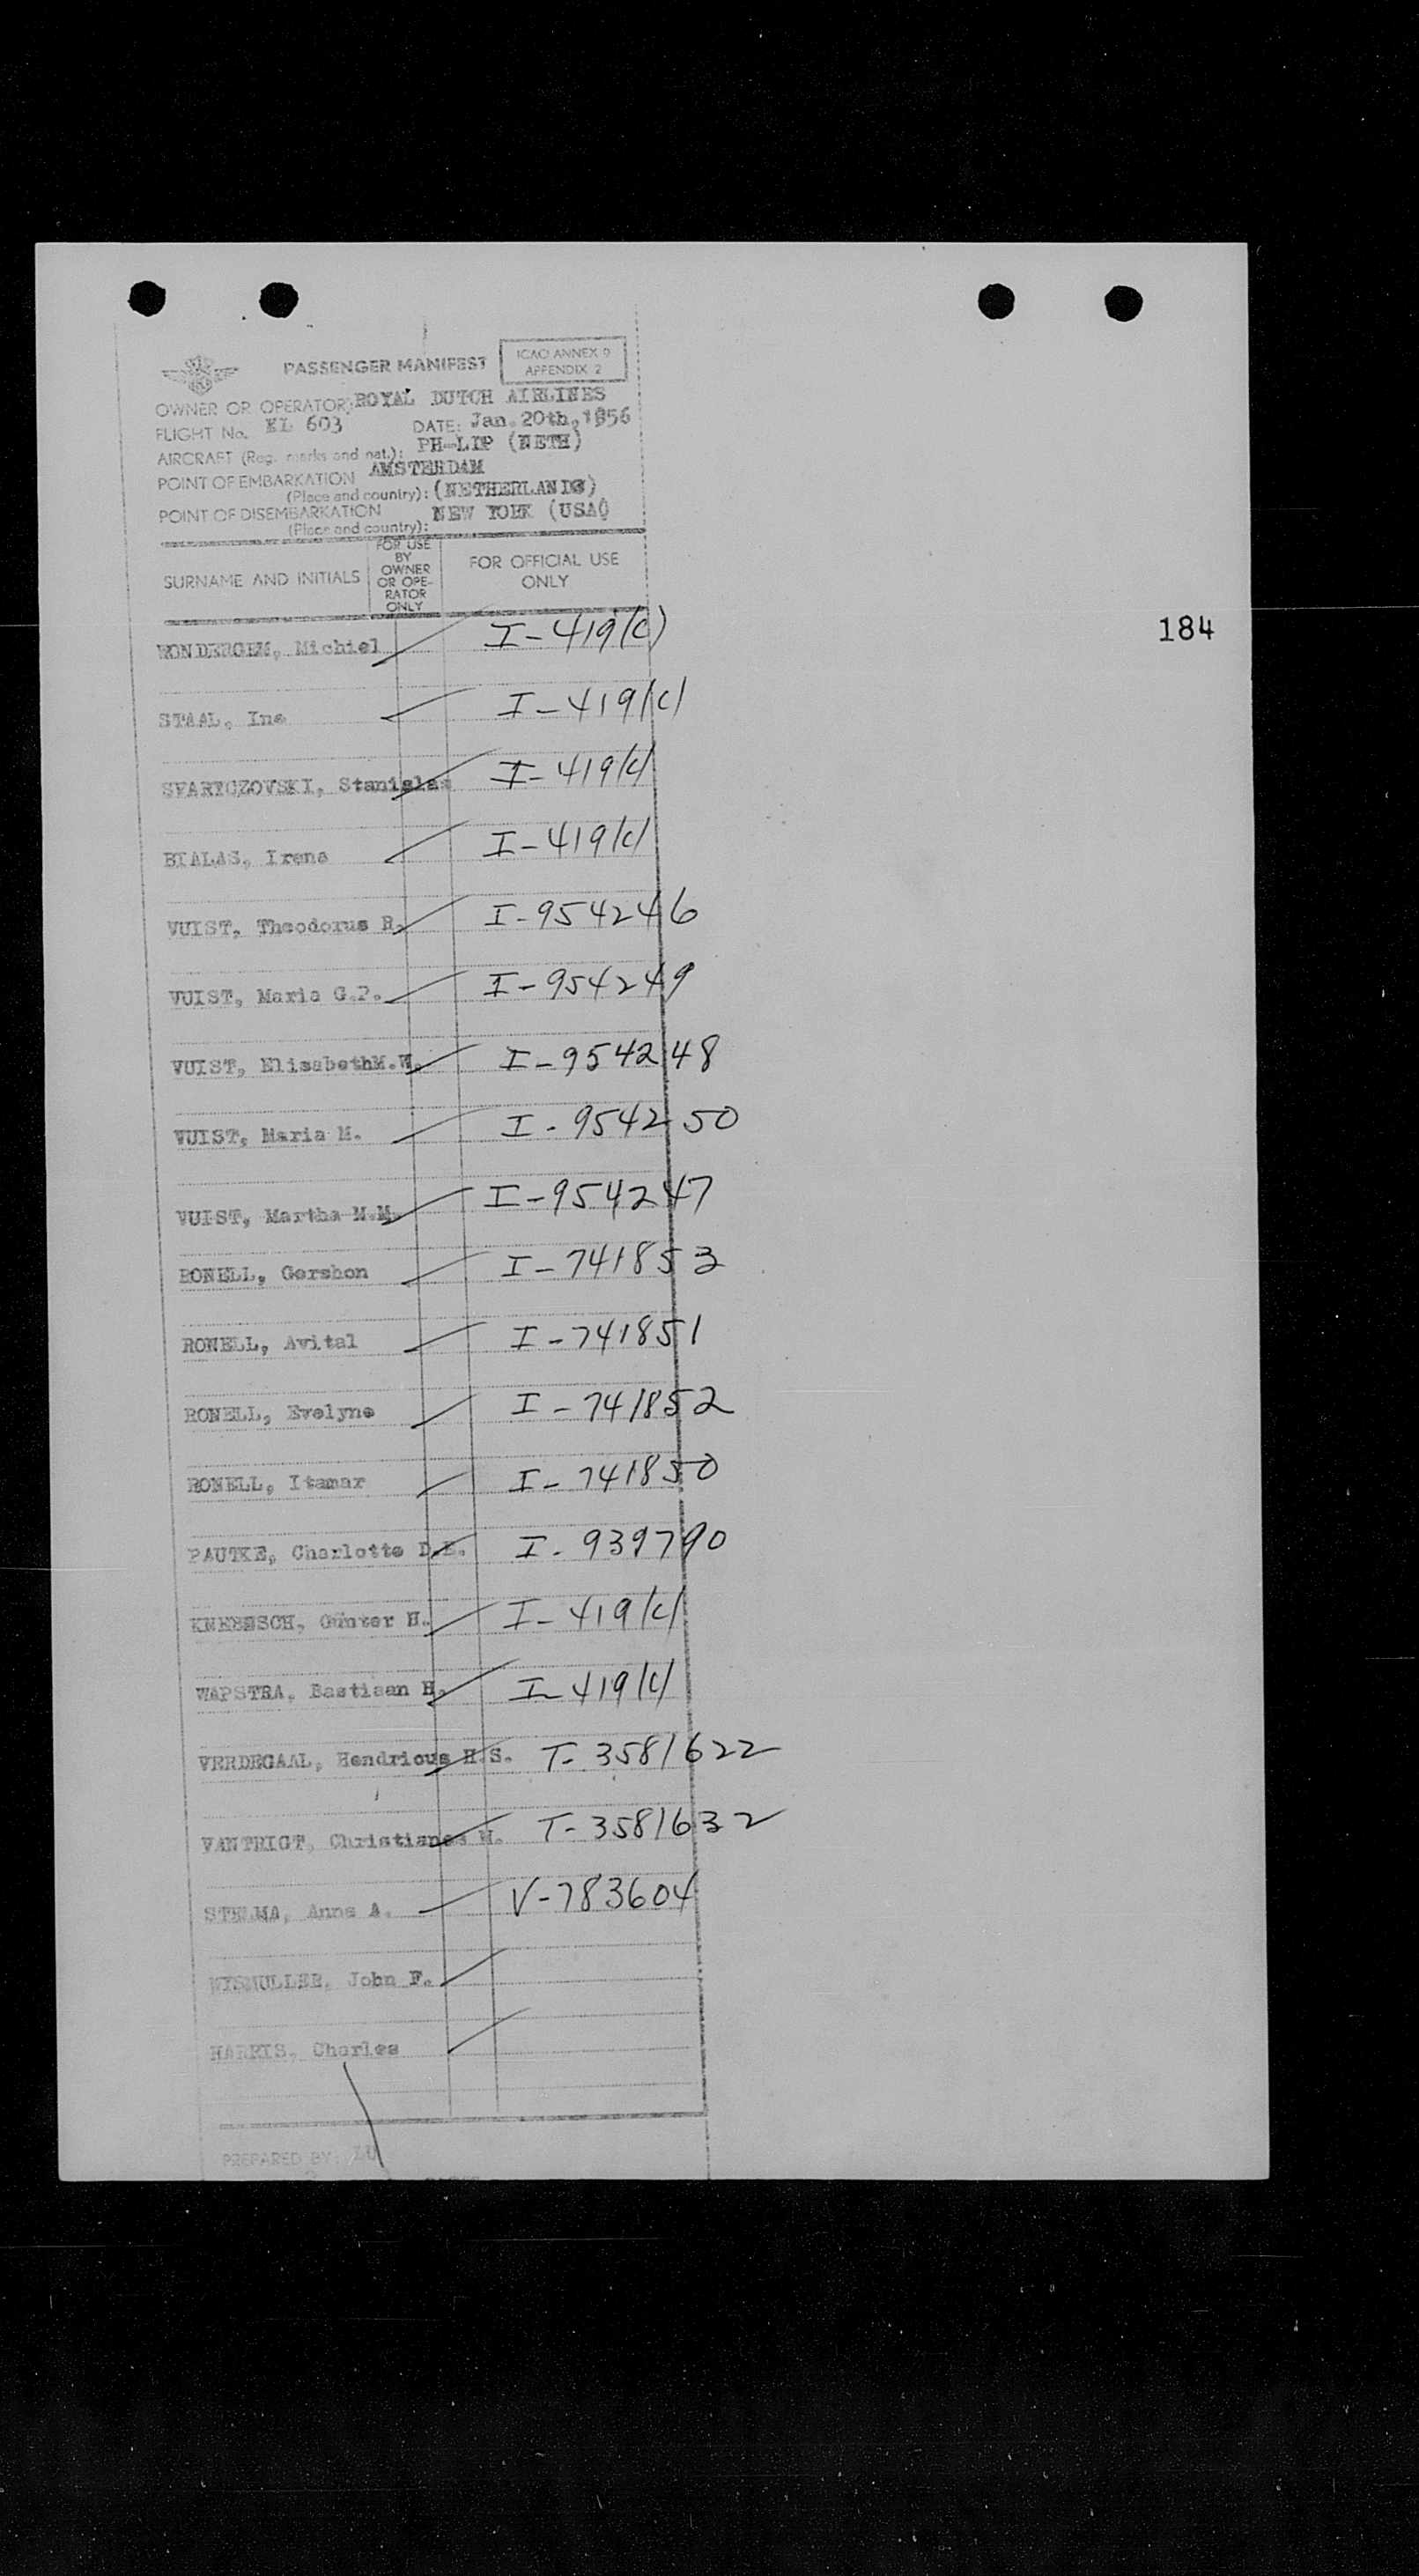 PASSENGER MANIFEST
ICAO ANNEX 9
APPENDIX 2
OWNER OR OPERATOR: ROYAL DUTCH AIRLINES
FLIGHT No. KL 603 DATE: Jan. 20th, 1956
AIRCRAFT (Reg. marks and nat.): PH-LIP (NETH)
POINT OF EMBARKATION AMSTERDAM
(Place and country): (NETHERLANDS)
POINT OF DISEMBARKATION NEW YORK (USA)
(Place and country):
SURNAME AND INITIALS
FOR USE
BY
OWNER
OR OPE-
RATOR
ONLY
FOR OFFICIAL USE
ONLY
184
Michiel I-419(c)
STAAL, Ine I-419(c)
Stanislas I-419(c)
BIALAS, Irena I-419(c)
VUIST, Theodorus R. I-954246
VUIST, Maria G.P. I-954249
VUIST, ElisabethM.W. I-954248
VUIST, Maria M. I-954250
VUIST, Martha M.M. I-954247
RONELL, Gershon I-741853
RONELL, Avital I-741851
RONELL, Evelyne I-741852
RONELL, Itamar I-741850
PAUTKE, Charlotte D.E. I-939790
Günter H. I-419(c)
WAPSTRA, Bastiaan H. I-419(c)
VERDEGAAL, Hendricus H.S. T-3581622
VANTRIGT, Christianus M. T-3581632
STELMA, Anna A. V-783604
John F.
HARRIS, Charles
PREPARED BY: LU